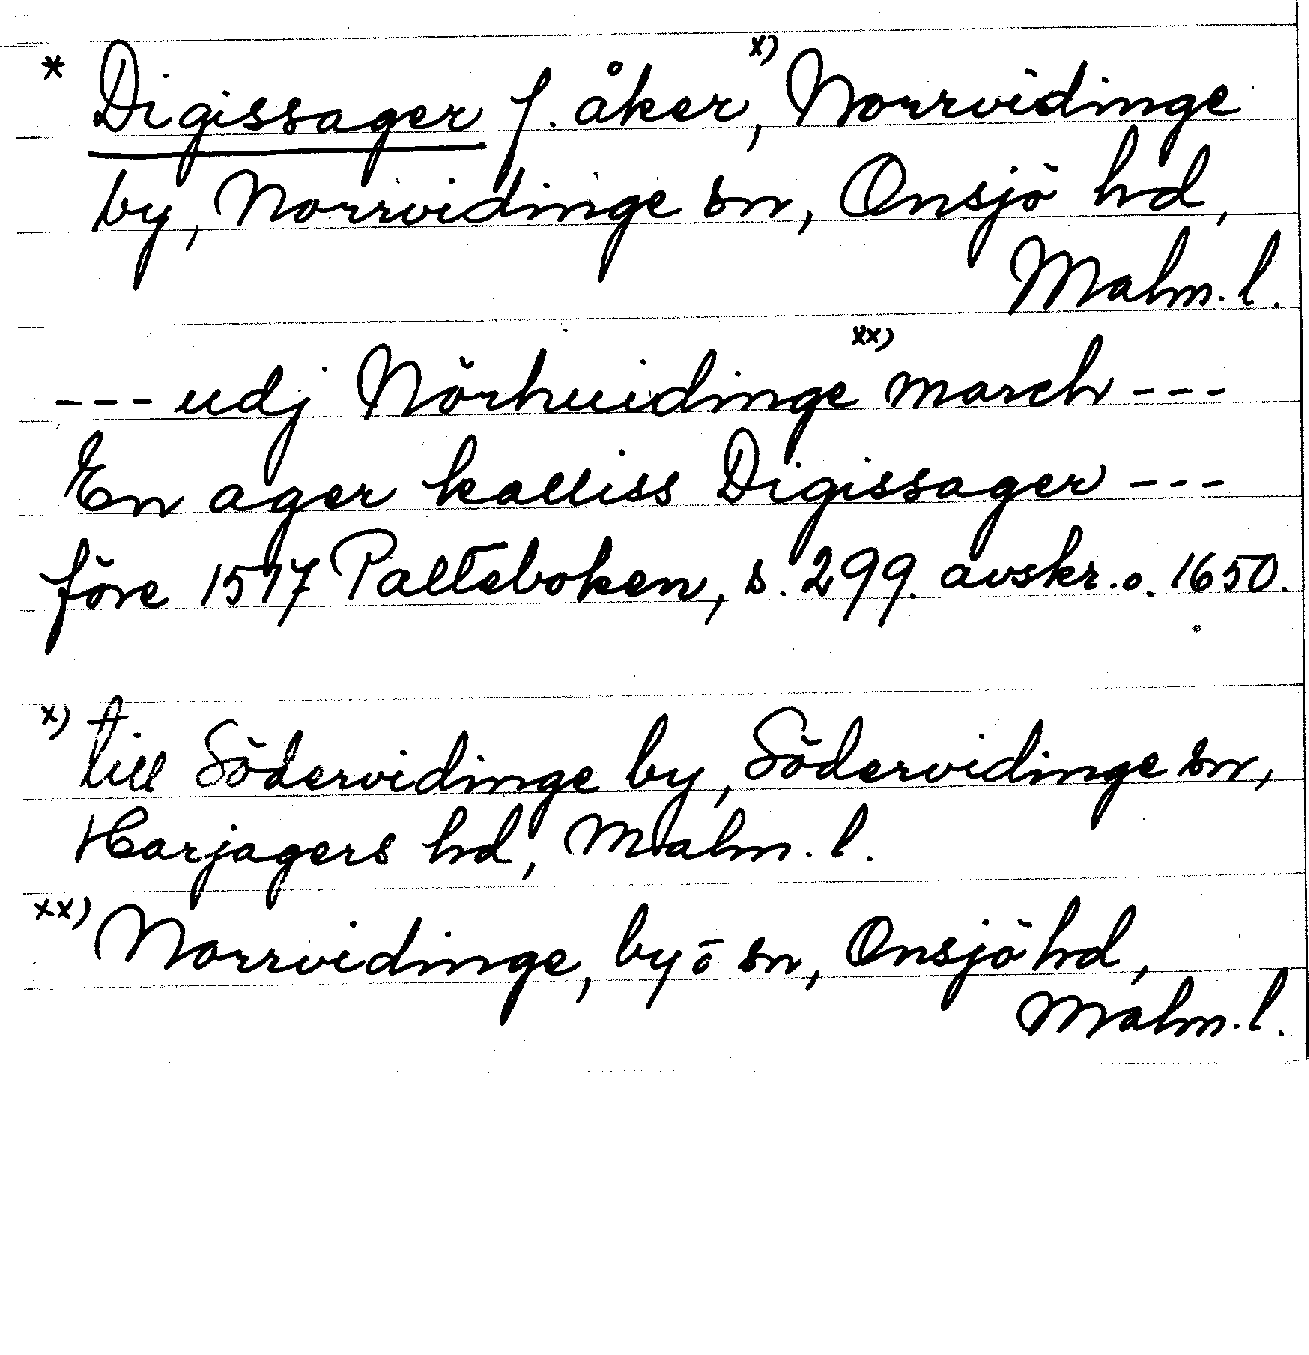 * Digissager f. åker, x) Norrvidinge
by, Norrvidinge sn, Onsjö hd,
Malm. l.
--- udj Nörhuidinge xx) march ---
En ager kalliss Digissager ---
före 1517 Palteboken, s. 299. avskr. o. 1650.
x) till Södervidinge by, Södervidinge sn,
Harjagers hd, Malm. l.
xx) Norrvidinge, by o sn, Onsjö hd,
Malm. l.